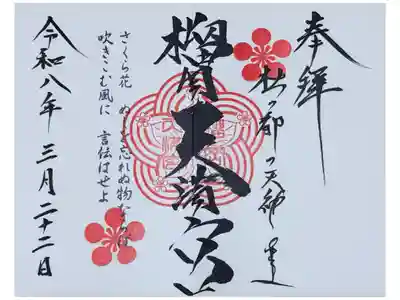 奉拝
杜の都の天神さま
榴岡天満宮
さくら花　ぬしを忘れぬ物ならば
吹きこむ風に　言伝はせよ
令和八年三月二十二日